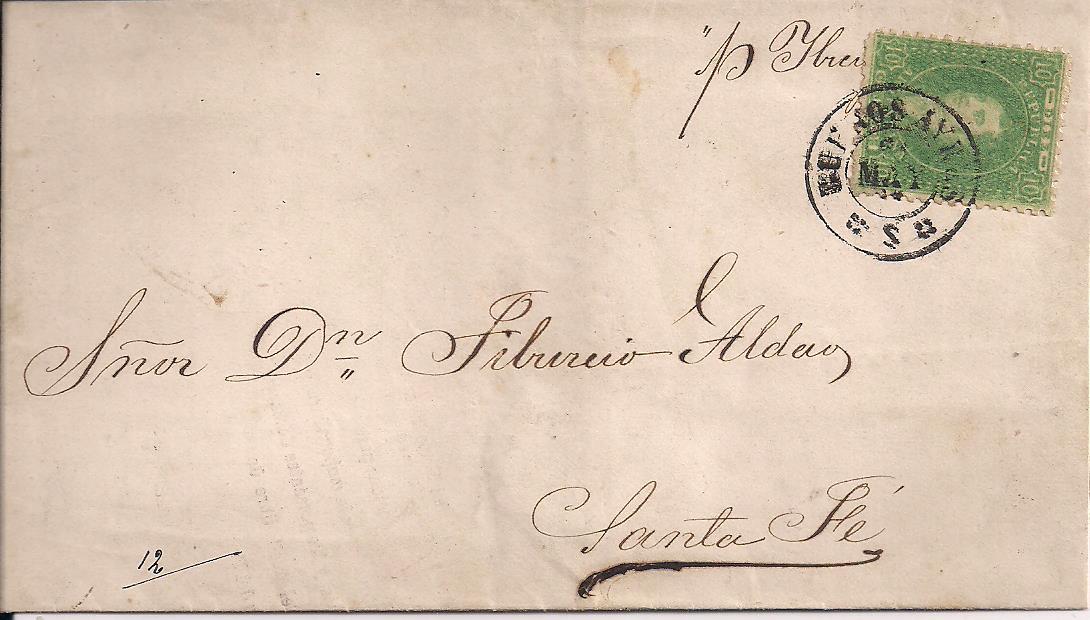 "p
10 10
BUENOS AYRES
MAY
S
Sñor Dn Tiburcio Aldao
Santa Fé
12